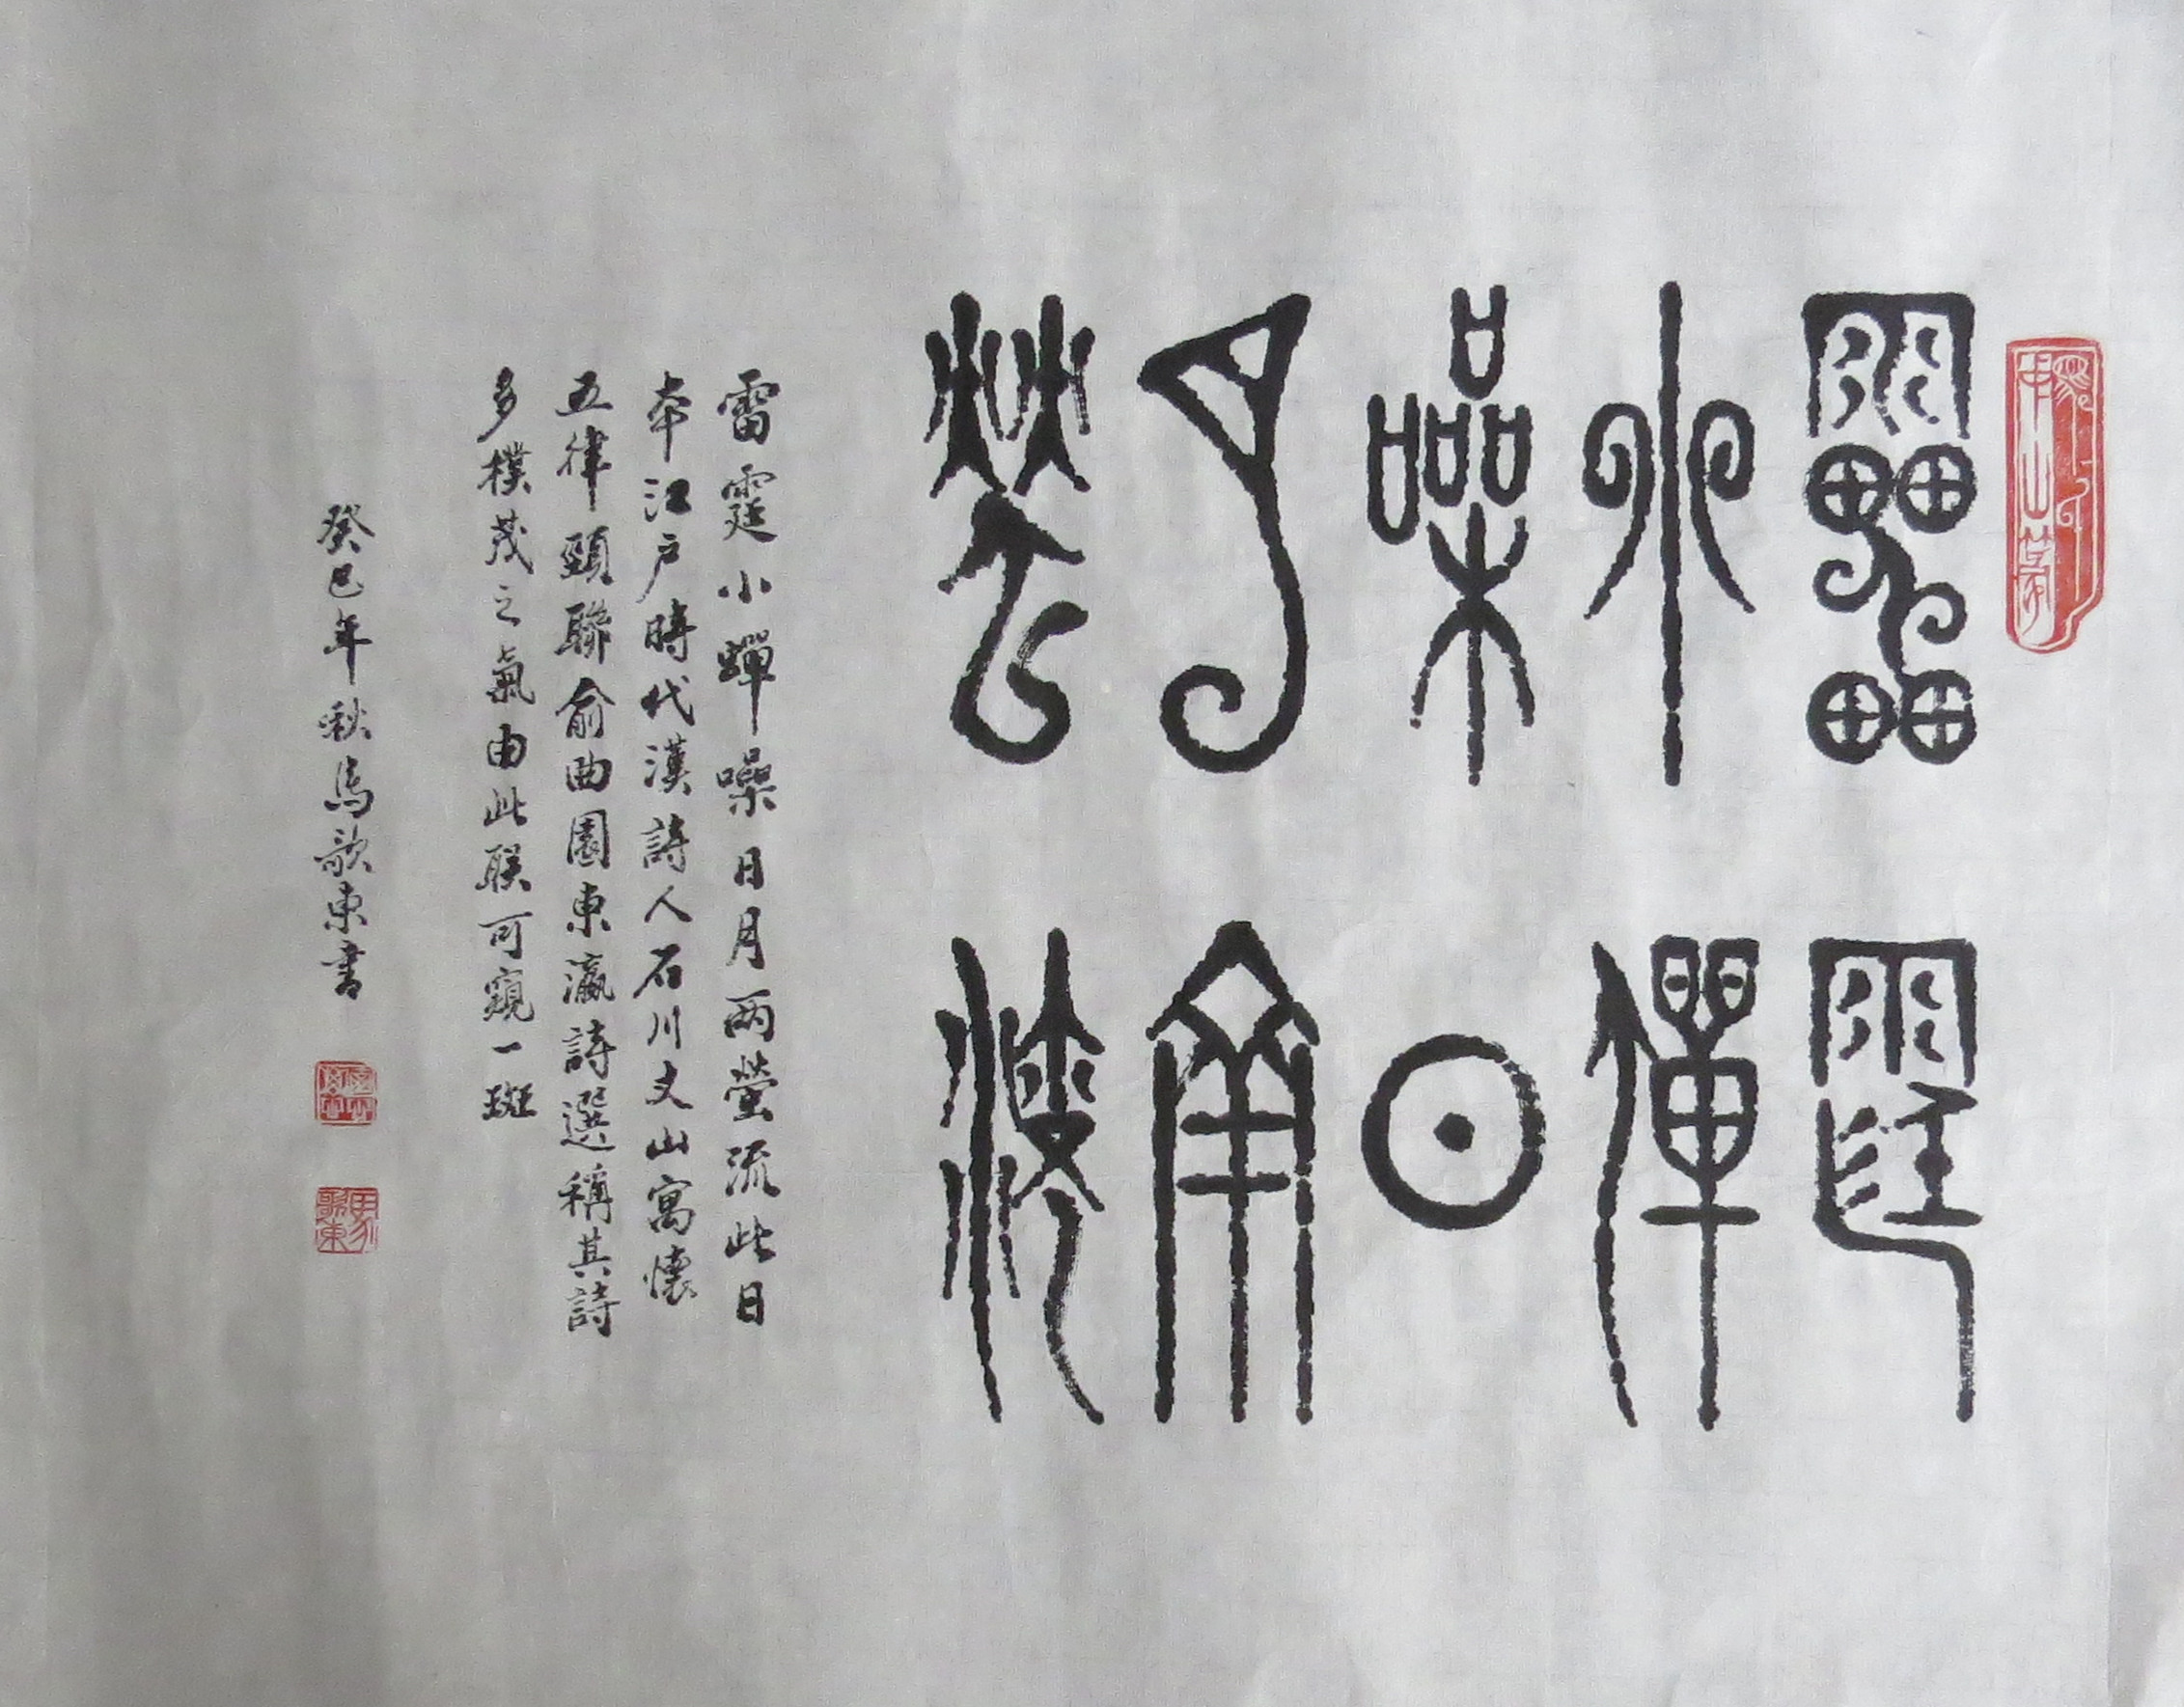 雷霆
小蟬
噪日
月兩
螢流
雷霆小蟬噪日月两螢流此日
本江戶時代漢詩人石川丈山寓懷
五律頸聯俞曲園東瀛詩選稱其詩
多樸茂之氣由此联可窺一斑
癸巳年秋馬歌東書
馬歌東